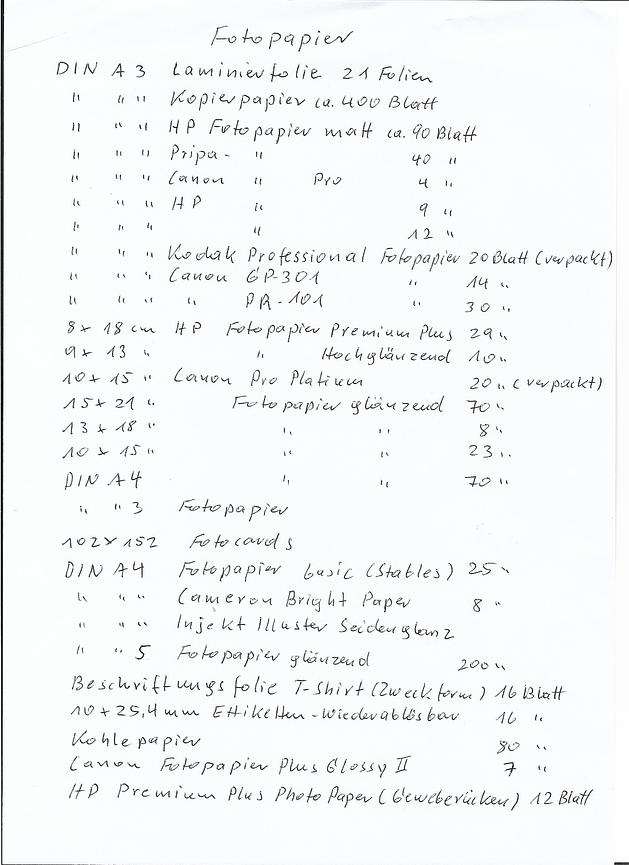 Fotopapier
DIN A 3 Laminierfolie 21 Folien
" " " Kopierpapier ca. 400 Blatt
" " " HP Fotopapier matt ca. 90 Blatt
" " " Pripa- " 40 "
" " " Canon " Pro 4 "
" " " HP " 9 "
" " " " 12 "
" " " Kodak Professional Fotopapier 20 Blatt (verpackt)
" " " Canon GP-301 " 14 "
" " " " PR-101 " 30 "
8x 18 cm HP Fotopapier Premium Plus 29 "
9x 13 " " Hochglänzend 10 "
10x 15 " Canon Pro Platinum 20 " (verpackt)
15x 21 " Fotopapier glänzend 70 "
13 x 18 " " " 8 "
10 x 15 " " " 23 "
DIN A4 " " 70 "
" " 3 Fotopapier
102x 152 Fotocards
DIN A4 Fotopapier basic (Stables) 25 "
" " " Cameron Bright Paper 8 "
" " " Injekt Illuster Seidenglanz
" " 5 Fotopapier glänzend 200 "
Beschriftungsfolie T-Shirt (Zweckform) 16 Blatt
10 x 25,4 mm Ettiketten - Wiederablösbar 16 "
Kohlepapier 80 "
Canon Fotopapier Plus Glossy II 7 "
HP Premium Plus Photo Paper (Geweberücken) 12 Blatt